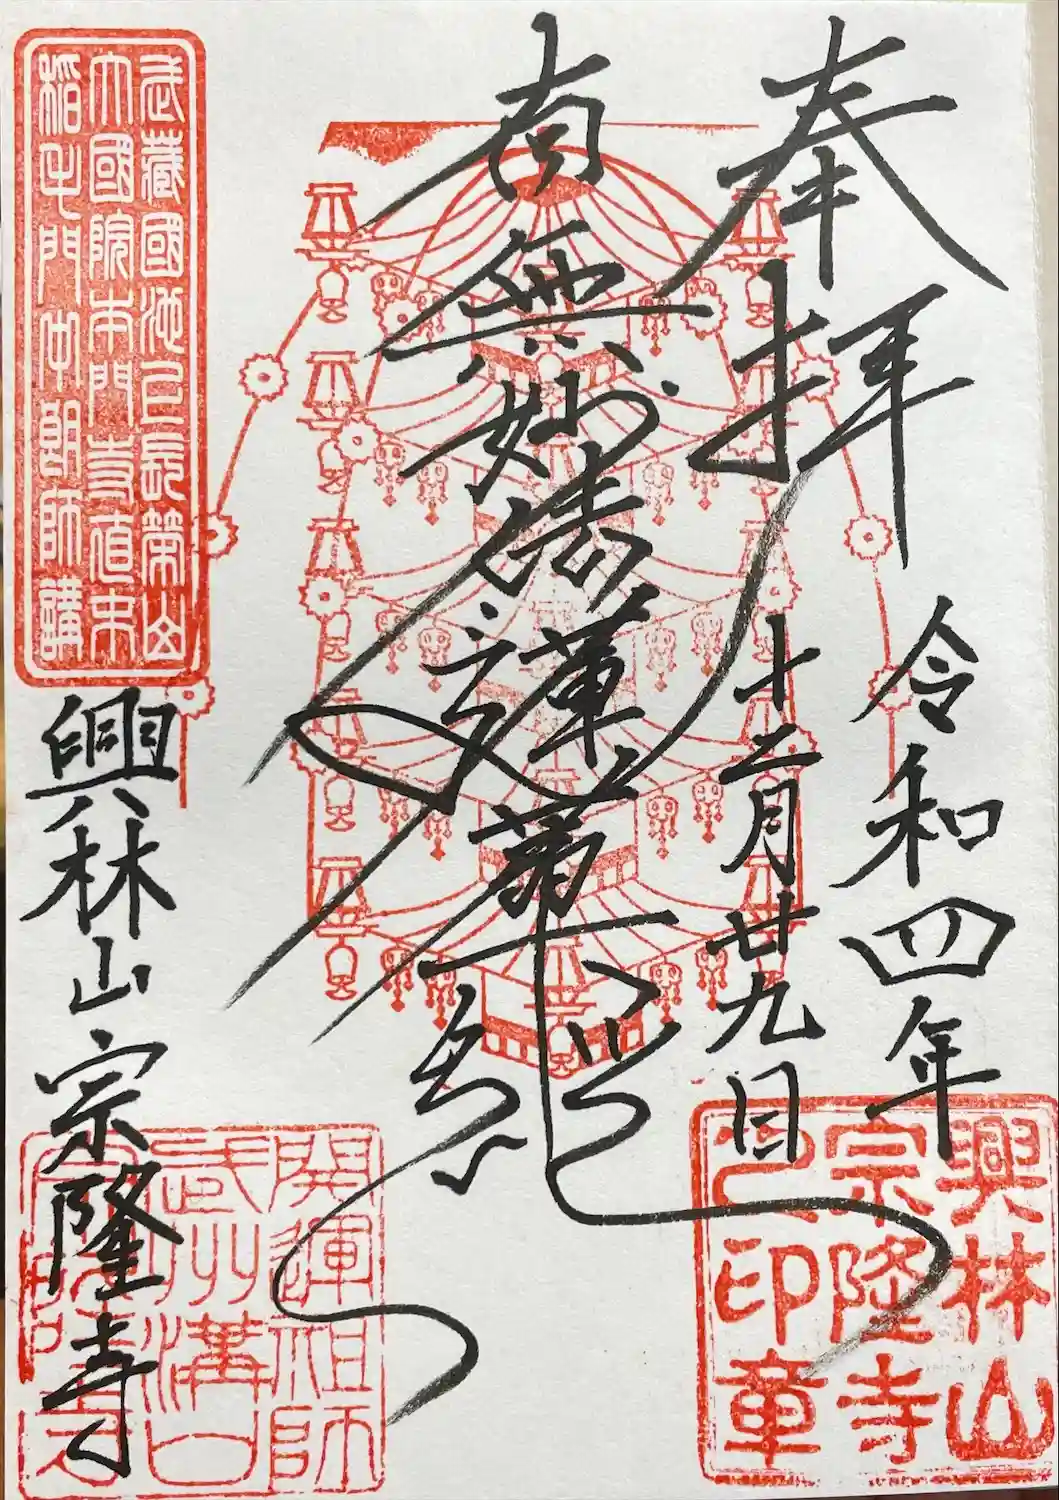 奉拝
令和四年
十二月廿九日
南無妙法蓮華経
興林山宗隆寺
武蔵國池上長榮山
大國院本門寺直末
稲毛門中朗師講
興林山
宗隆寺
之印章
開運祖師
武州溝口
宗隆寺